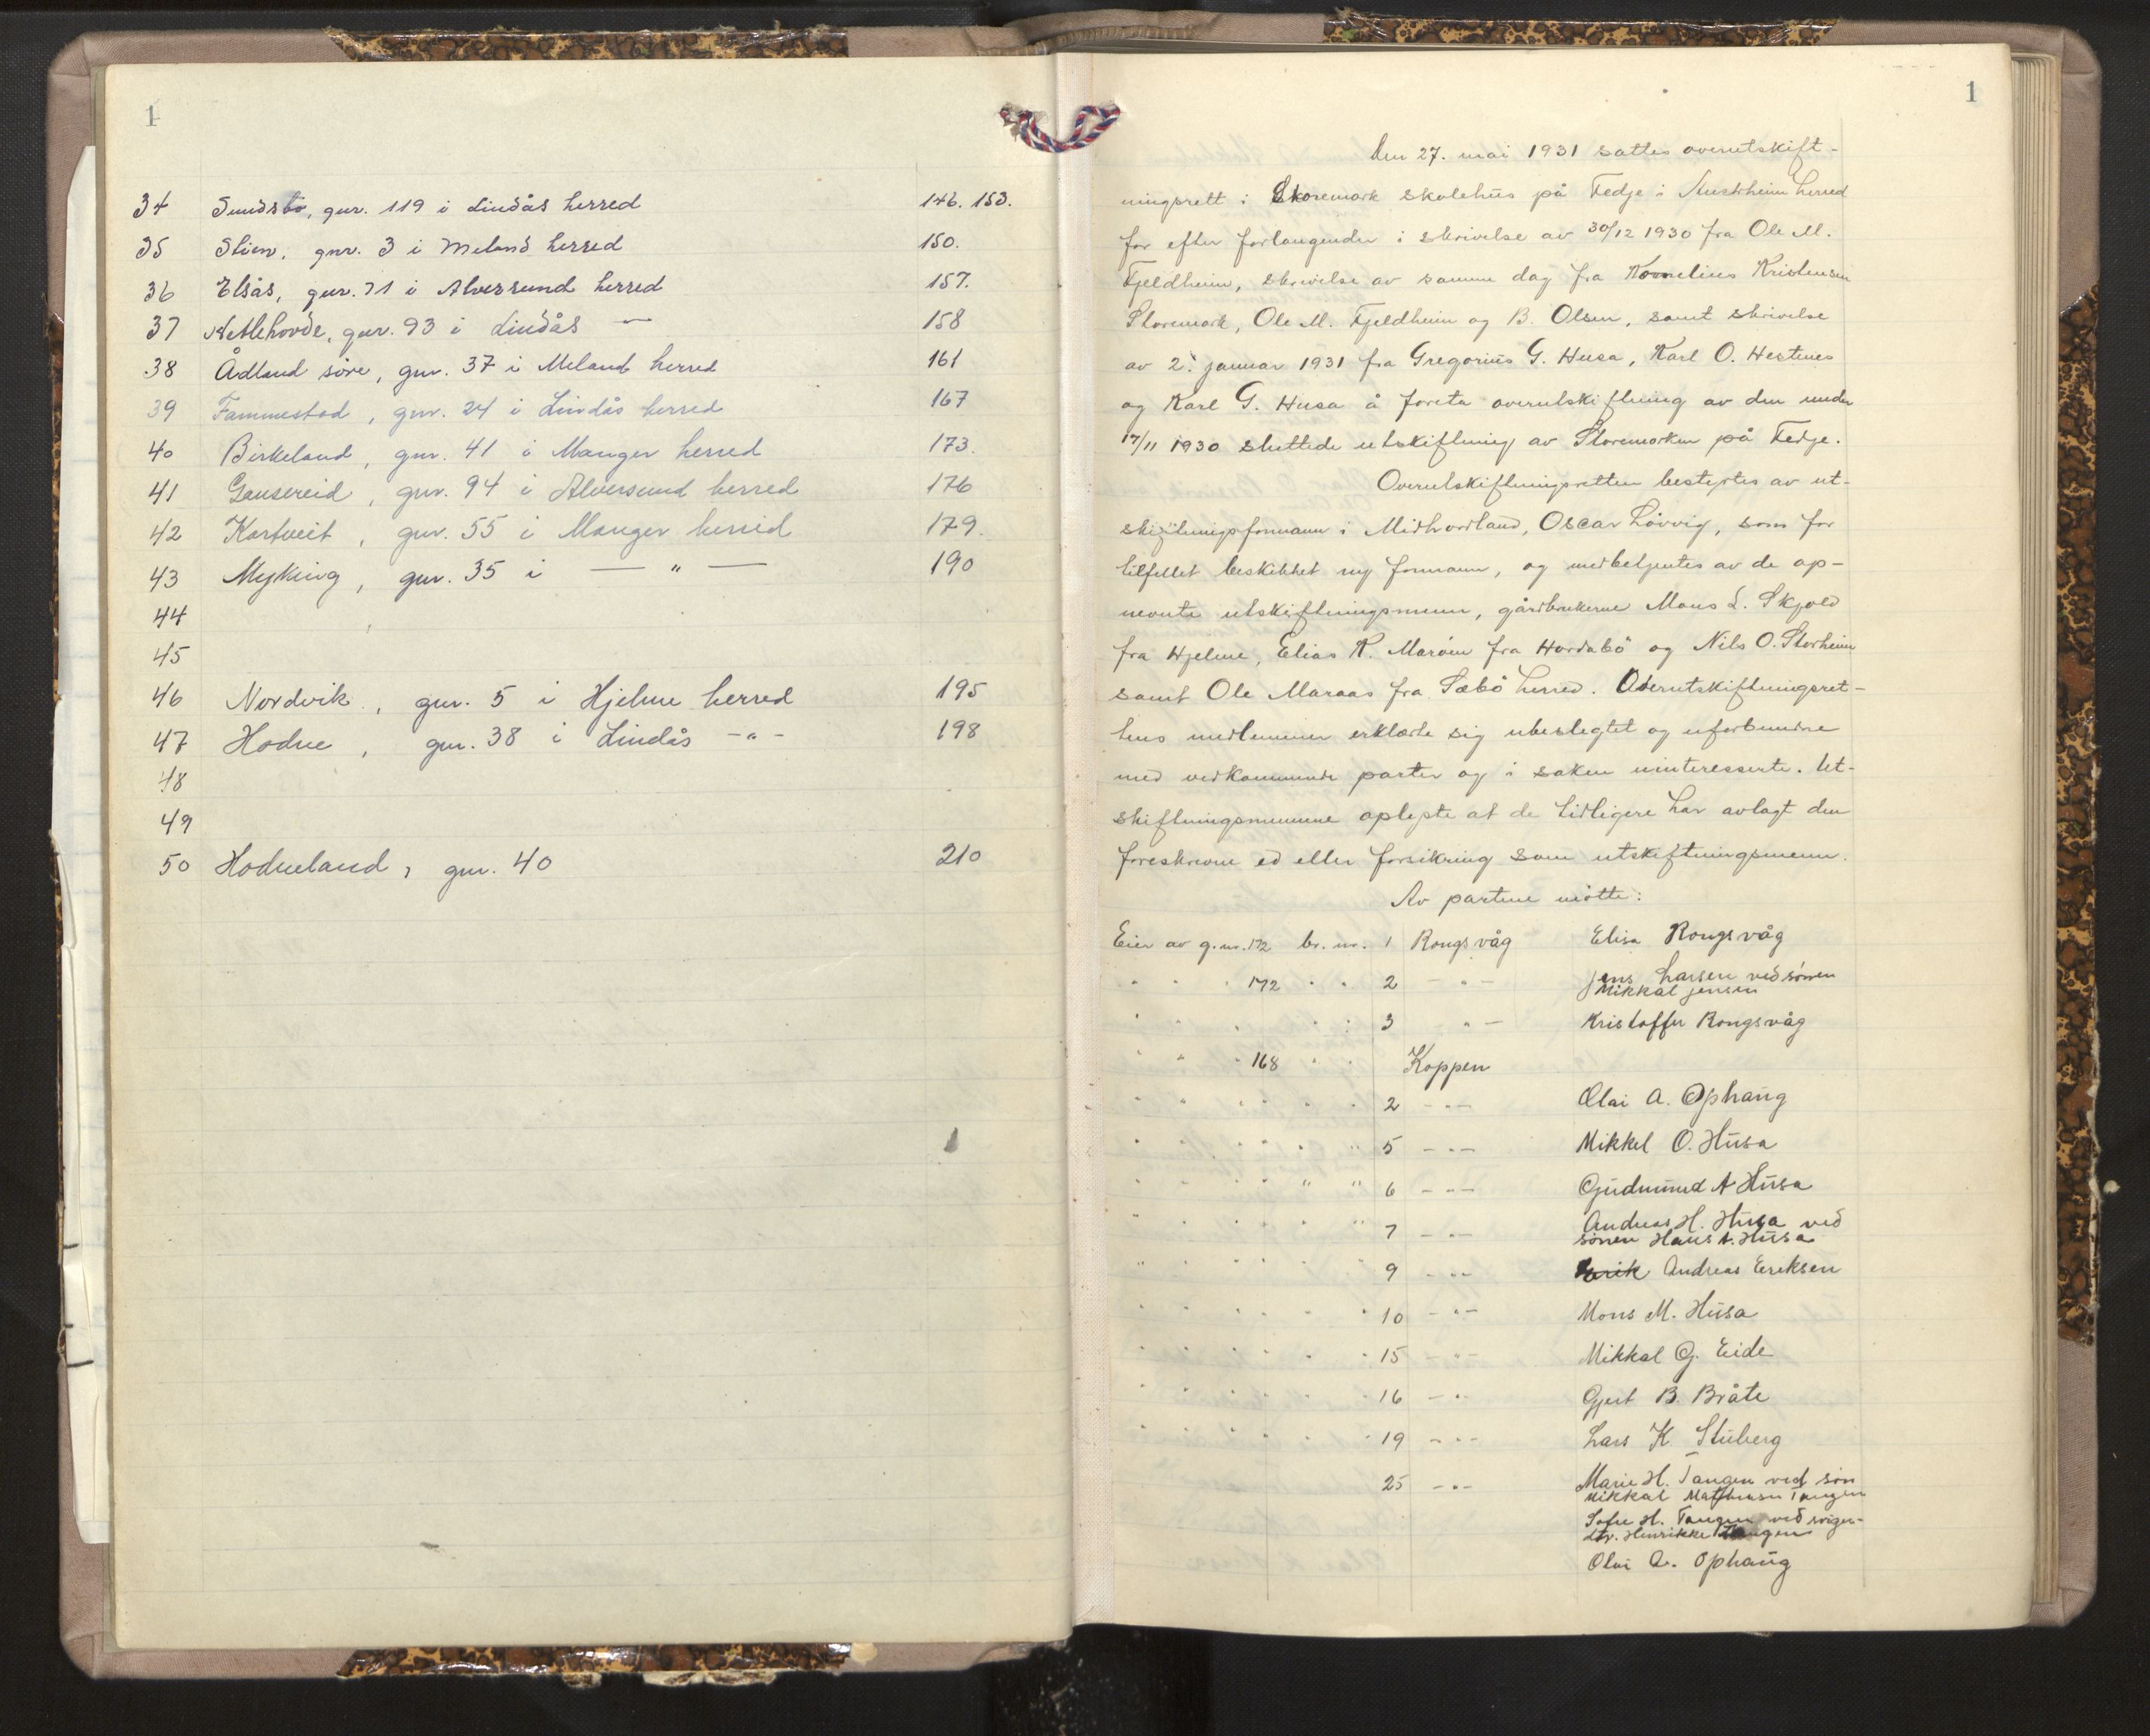 1
34 Sundsbø, gnr. 119 i Lindås herred 146. 153.
35 Stien, gnr. 3 i Meland herred 150.
36 Elsås, gnr. 71 i Alversund herred 157.
37 Netlehovde, gnr. 93 i Lindås — 158
38 Ådland söre, gnr. 37 i Meland herred 161
39 Fammestad, gnr. 24 i Lindås herred 167
40 Birkeland, gnr. 41 i Manger herred 173.
41 Gausereid, gnr. 94 i Alversund herred 176
42 Kartveit, gnr. 55 i Manger herred 179.
43 Myking, gnr. 35 i — " — 190
44
45
46 Nordvik, gnr. 5 i Hjelme herred 195
47 Hodne, gnr. 38 i Lindås -"- 198
48
49
50 Hodneland, gnr. 40 210
1
Den 27. mai 1931 sattes overutskift-
ningsrett i Storemark skolehus på Fedje i Austrheim herred
for efter forlangender i skrivelse av 30/12 1930 fra Ole M.
Fjeldheim, skrivelse av samme dag fra Kornelius Kristensen
Storemark, Ole M. Fjeldheim og B. Olsen, samt skrivelse
av 2. januar 1931 fra Gregorius G. Husa, Karl O. Hestenes
og Karl G. Husa å foreta overutskiftning av den under
17/11 1930 sluttede utskiftning av Storemarken på Fedje.
Overutskiftningsretten bestyrtes av ut-
skiftningsformann i Midhordland, Oscar Lövvig, som for
tilfellet beskikket ny formann, og medbetjentes av de op-
nevnte utskiftningsmenn, gårdbrukerne Mons L. Skjold
fra Hjelme, Elias K. Maröen fra Hordabö og Nils O. Storheim
samt Ole Maraas fra Sæbö herred. Overutskiftningsret-
tens medlemmer erklærte sig ubeslegtet og uforbundne
med vedkommende parter og i saken uinteresserte. Ut-
skiftningsmennene oplyste at de tidligere har avlagt den
foreskrevne ed eller forsikring som utskiftningsmenn.
Av partene mötte:
Eier av g.nr. 172 br. nr. 1 Rongsvåg Elisa Rongsvåg
" " " 172 " " 2 - " - Jens Larsen ved sönen
Mikkal Jensen
" " " " " 3 - " - Kristoffer Rongsvåg
" " " 168 " " Koppen
" " " " " 2 - " - Olai A. Ophaug
" " " " " 5 - " - Mikkel O. Husa
" " " " " 6 - " - Gudmund A Husa
" " " " " 7 - " - Andreas H. Husa ved
sönen Hans A. Husa
" " " " " 9 - " - Erik Andreas Eriksen
" " " " " 10 - " - Mons M. Husa
" " " " " 15 - " - Mikkal G. Eide
" " " " " 16 - " - Gjert B. Bråte
" " " " " 19 - " - Lars K Stuberg
25 - " - Marie H. Tangen ved sön
Mikkal Mathiasen Tangen
Sofie H. Tangen ved sviger-
dtr. Henrikke Tangen
Olai A. Ophaug